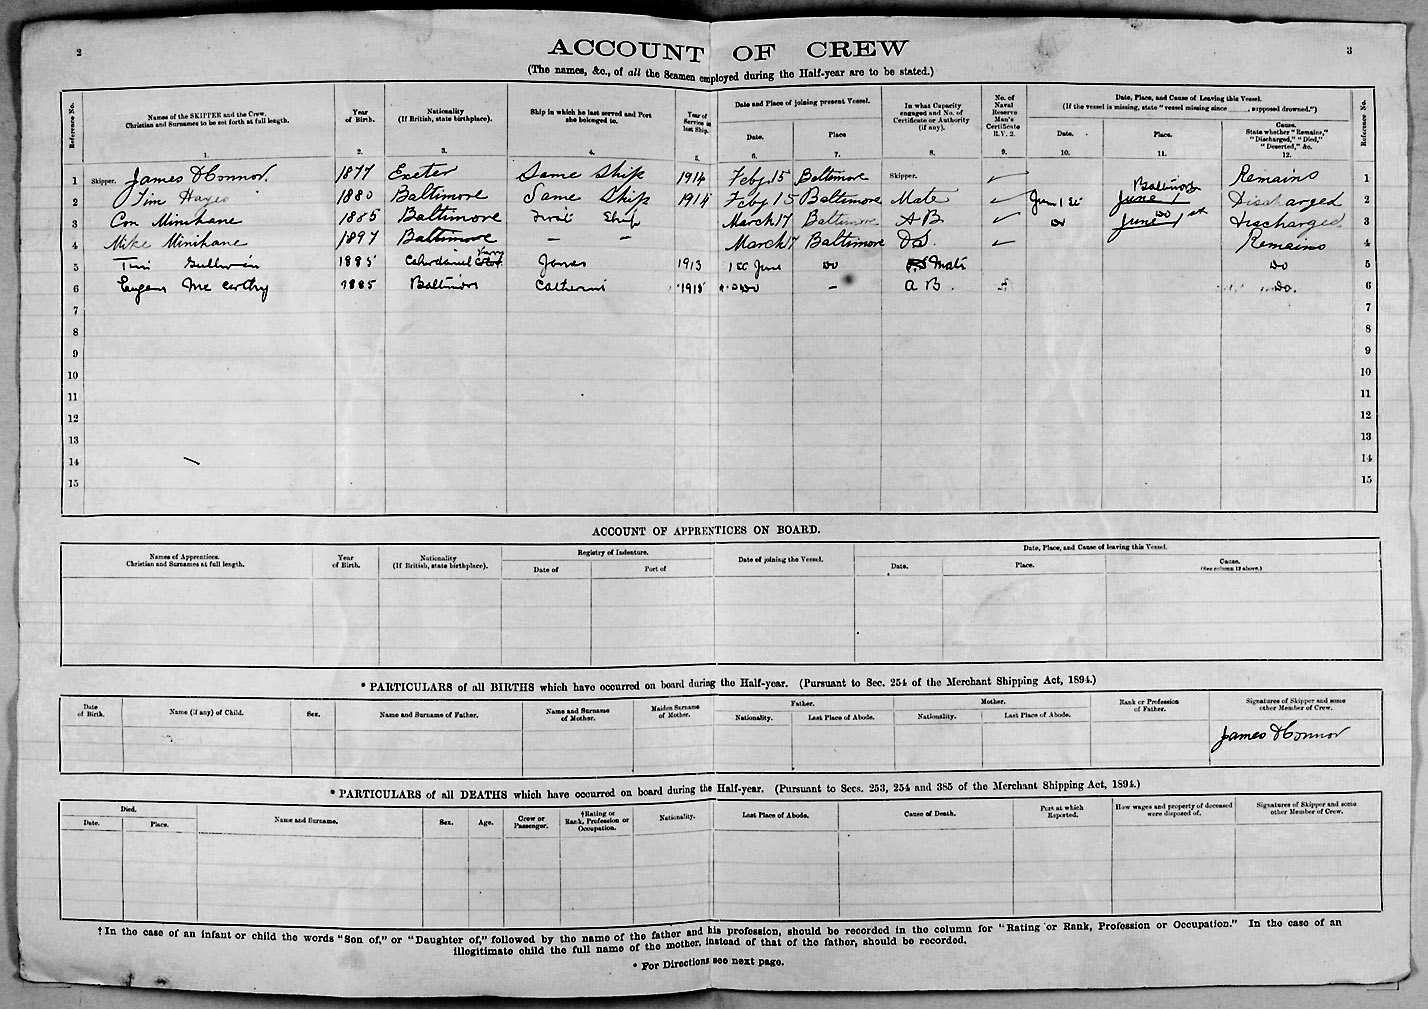 2
ACCOUNT OF CREW
3
(The names, &c., of all the Seamen employed during the Half-year are to be stated.)
Reference No.
Names of the SKIPPER and the Crew.
Christian and Surnames to be set forth at full length.
1.
Year
of Birth.
2.
Nationality
(If British, state birthplace).
3.
Ship in which he last served and Port
she belonged to.
4.
Year of
Service in
last Ship.
5.
Date and Place of joining present Vessel.
Date.
6.
Place
7.
In what Capacity
engaged and No. of
Certificate or Authority
(if any).
8.
No. of
Naval
Reserve
Man's
Certificate
R.V. 2.
9.
Date, Place, and Cause of Leaving this Vessel.
(If the vessel is missing, state "vessel missing since ......, supposed drowned.")
Date.
10.
Place.
11.
Cause.
State whether "Remains,"
"Discharged," "Died,"
"Deserted," &c.
12.
Reference No.
1 Skipper. James O'Connor. 1877 Exeter Same Ship 1914 Feby 15 Baltimore Skipper. Remains 1
2 Tim Hayes 1880 Baltimore Same Ship 1914 Feby 15 Baltimore Mate June 1 Baltimore June 1 Discharged 2
3 Con Minihane 1885 Baltimore First Ship March 17 Baltimore AB Do Do June 1st Discharged 3
4 Mike Minihane 1897 Baltimore – – March 17 Baltimore OS. Remains 4
5 Tim 1885 Caherdaniel Kerry 1913 1st June Do Mate Do 5
6 Eugene McCarthy 1885 Baltimore Catherine 1915 Do – AB. Do. 6
7 7
8 8
9 9
10 10
11 11
12 12
13 13
14 14
15 15
ACCOUNT OF APPRENTICES ON BOARD.
Names of Apprentices.
Christian and Surnames at full length.
Year
of Birth.
Nationality
(If British, state birthplace).
Registry of Indenture.
Date of
Port of
Date of joining the Vessel.
Date, Place, and Cause of leaving this Vessel.
Date.
Place.
Cause.
(See column 12 above.)
* PARTICULARS of all BIRTHS which have occurred on board during the Half-year. (Pursuant to Sec. 254 of the Merchant Shipping Act, 1894.)
Date
of Birth.
Name (if any) of Child.
Sex.
Name and Surname of Father.
Name and Surname
of Mother.
Maiden Surname
of Mother.
Father.
Nationality.
Last Place of Abode.
Mother.
Nationality.
Last Place of Abode.
Rank or Profession
of Father.
Signatures of Skipper and some
other Member of Crew.
James O'Connor
* PARTICULARS of all DEATHS which have occurred on board during the Half-year. (Pursuant to Secs. 253, 254 and 385 of the Merchant Shipping Act, 1894.)
Died.
Date.
Place.
Name and Surname.
Sex.
Age.
Crew or
Passenger.
†Rating or
Rank, Profession or
Occupation.
Nationality.
Last Place of Abode.
Cause of Death.
Port at which
Reported.
How wages and property of deceased
were disposed of.
Signatures of Skipper and some
other Member of Crew.
† In the case of an infant or child the words "Son of," or "Daughter of," followed by the name of the father and his profession, should be recorded in the column for "Rating or Rank, Profession or Occupation." In the case of an
illegitimate child the full name of the mother, instead of that of the father, should be recorded.
* For Directions see next page.